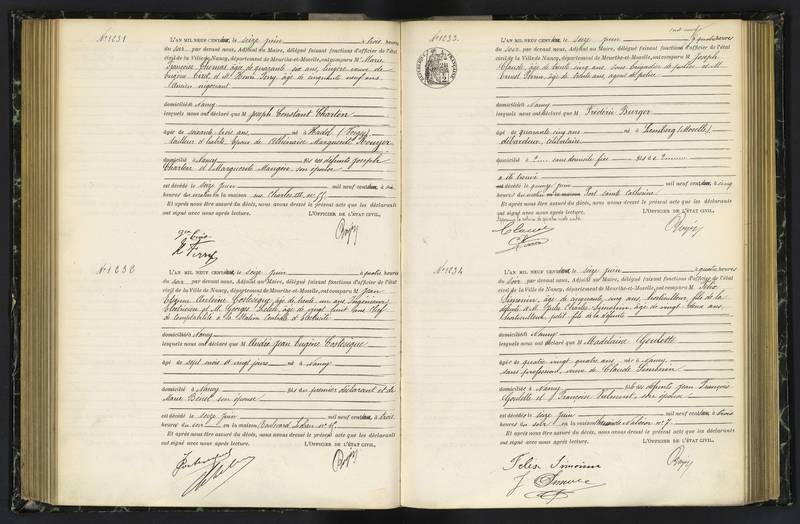 N° 1231
L'AN MIL NEUF CENT deux, le seize juin à trois heures
du soir par devant nous, Adjoint au Maire, délégué faisant fonctions d'officier de l'état
civil de la Ville de Nancy, département de Meurthe-et-Moselle, ont comparu M. Marie
Françoise Thomas, âgée de quarante six ans, lingère veuve de
Eugène et M. Henri Ferry âgé de cinquante neuf ans,
ancien négociant
domiciliés Nancy
lesquels nous ont déclaré que M Joseph Constant Charton
âgé de soixante trois ans né à Hadol (Vosges)
tailleur d'habits, époux de Marguerite
domicilié à Nancy fils des défunts Joseph
Charton et Marguerite Mangin, son épouse
est décédé le seize juin mil neuf cent deux, à
heures du matin en la maison rue Charles III n° 55
Et après nous être assuré du décès, nous avons dressé le présent acte que les déclarants
ont signé avec nous après lecture. L'OFFICIER DE L'ÉTAT CIVIL,
H Ferry
N° 1232
L'AN MIL NEUF CENT deux, le seize juin à quatre heures
du soir par devant nous, Adjoint au Maire, délégué faisant fonctions d'officier de l'état
civil de la Ville de Nancy, département de Meurthe-et-Moselle, ont comparu M. Jean
Antoine âgé de trente un ans, Ingénieur
Electricien et M. Georges âgé de vingt huit ans Chef
de Comptabilité à la Station Centrale d'Electricité
domiciliés Nancy
lesquels nous ont déclaré que M André Jean Eugène
âgé de sept mois et vingt jours né à Nancy
domicilié à Nancy fils du premier déclarant et de
Marie son épouse
est décédé le seize juin mil neuf cent deux, à trois
heures du soir en la maison Boulevard Lobau n°
Et après nous être assuré du décès, nous avons dressé le présent acte que les déclarants
ont signé avec nous après lecture. L'OFFICIER DE L'ÉTAT CIVIL,
N° 1233
L'AN MIL NEUF CENT deux, le seize juin à quatre heures
du soir par devant nous, Adjoint au Maire, délégué faisant fonctions d'officier de l'état
civil de la Ville de Nancy, département de Meurthe-et-Moselle, ont comparu M. Joseph
Claude, âgé de trente cinq ans, sous brigadier de police et M.
Ernest âgé de trente ans, agent de police
domiciliés Nancy
lesquels nous ont déclaré que M Frédéric Burger
âgé de quarante cinq ans né à (Moselle)
débardeur, célibataire
domicilié à sans domicile fixe fils de
a été trouvé
est décédé le quinze juin mil neuf cent deux, à cinq
heures du matin en la maison Port Sainte Catherine
Et après nous être assuré du décès, nous avons dressé le présent acte que les déclarants
ont signé avec nous après lecture. L'OFFICIER DE L'ÉTAT CIVIL,
Claude
N° 1234
L'AN MIL NEUF CENT deux, le seize juin à quatre heures
du soir par devant nous, Adjoint au Maire, délégué faisant fonctions d'officier de l'état
civil de la Ville de Nancy, département de Meurthe-et-Moselle, ont comparu M. Félix
Simonin, âgé de cinquante cinq ans, horticulteur, fils de la
défunte et M. Jules Charles Simonin, âgé de vingt deux ans,
horticulteur, petit-fils de la défunte
domiciliés Nancy
lesquels nous ont déclaré que M Madeleine Goulette
âgée de quatre vingt quatre ans née à Nancy
sans profession, veuve de Claude Simonin
domicilié à Nancy fille des défunts Jean François
Goulette et Françoise son épouse
est décédée le seize juin mil neuf cent deux, à trois
heures du soir en la maison n° 7
Et après nous être assuré du décès, nous avons dressé le présent acte que les déclarants
ont signé avec nous après lecture. L'OFFICIER DE L'ÉTAT CIVIL,
Felix Simonin
J Simonin